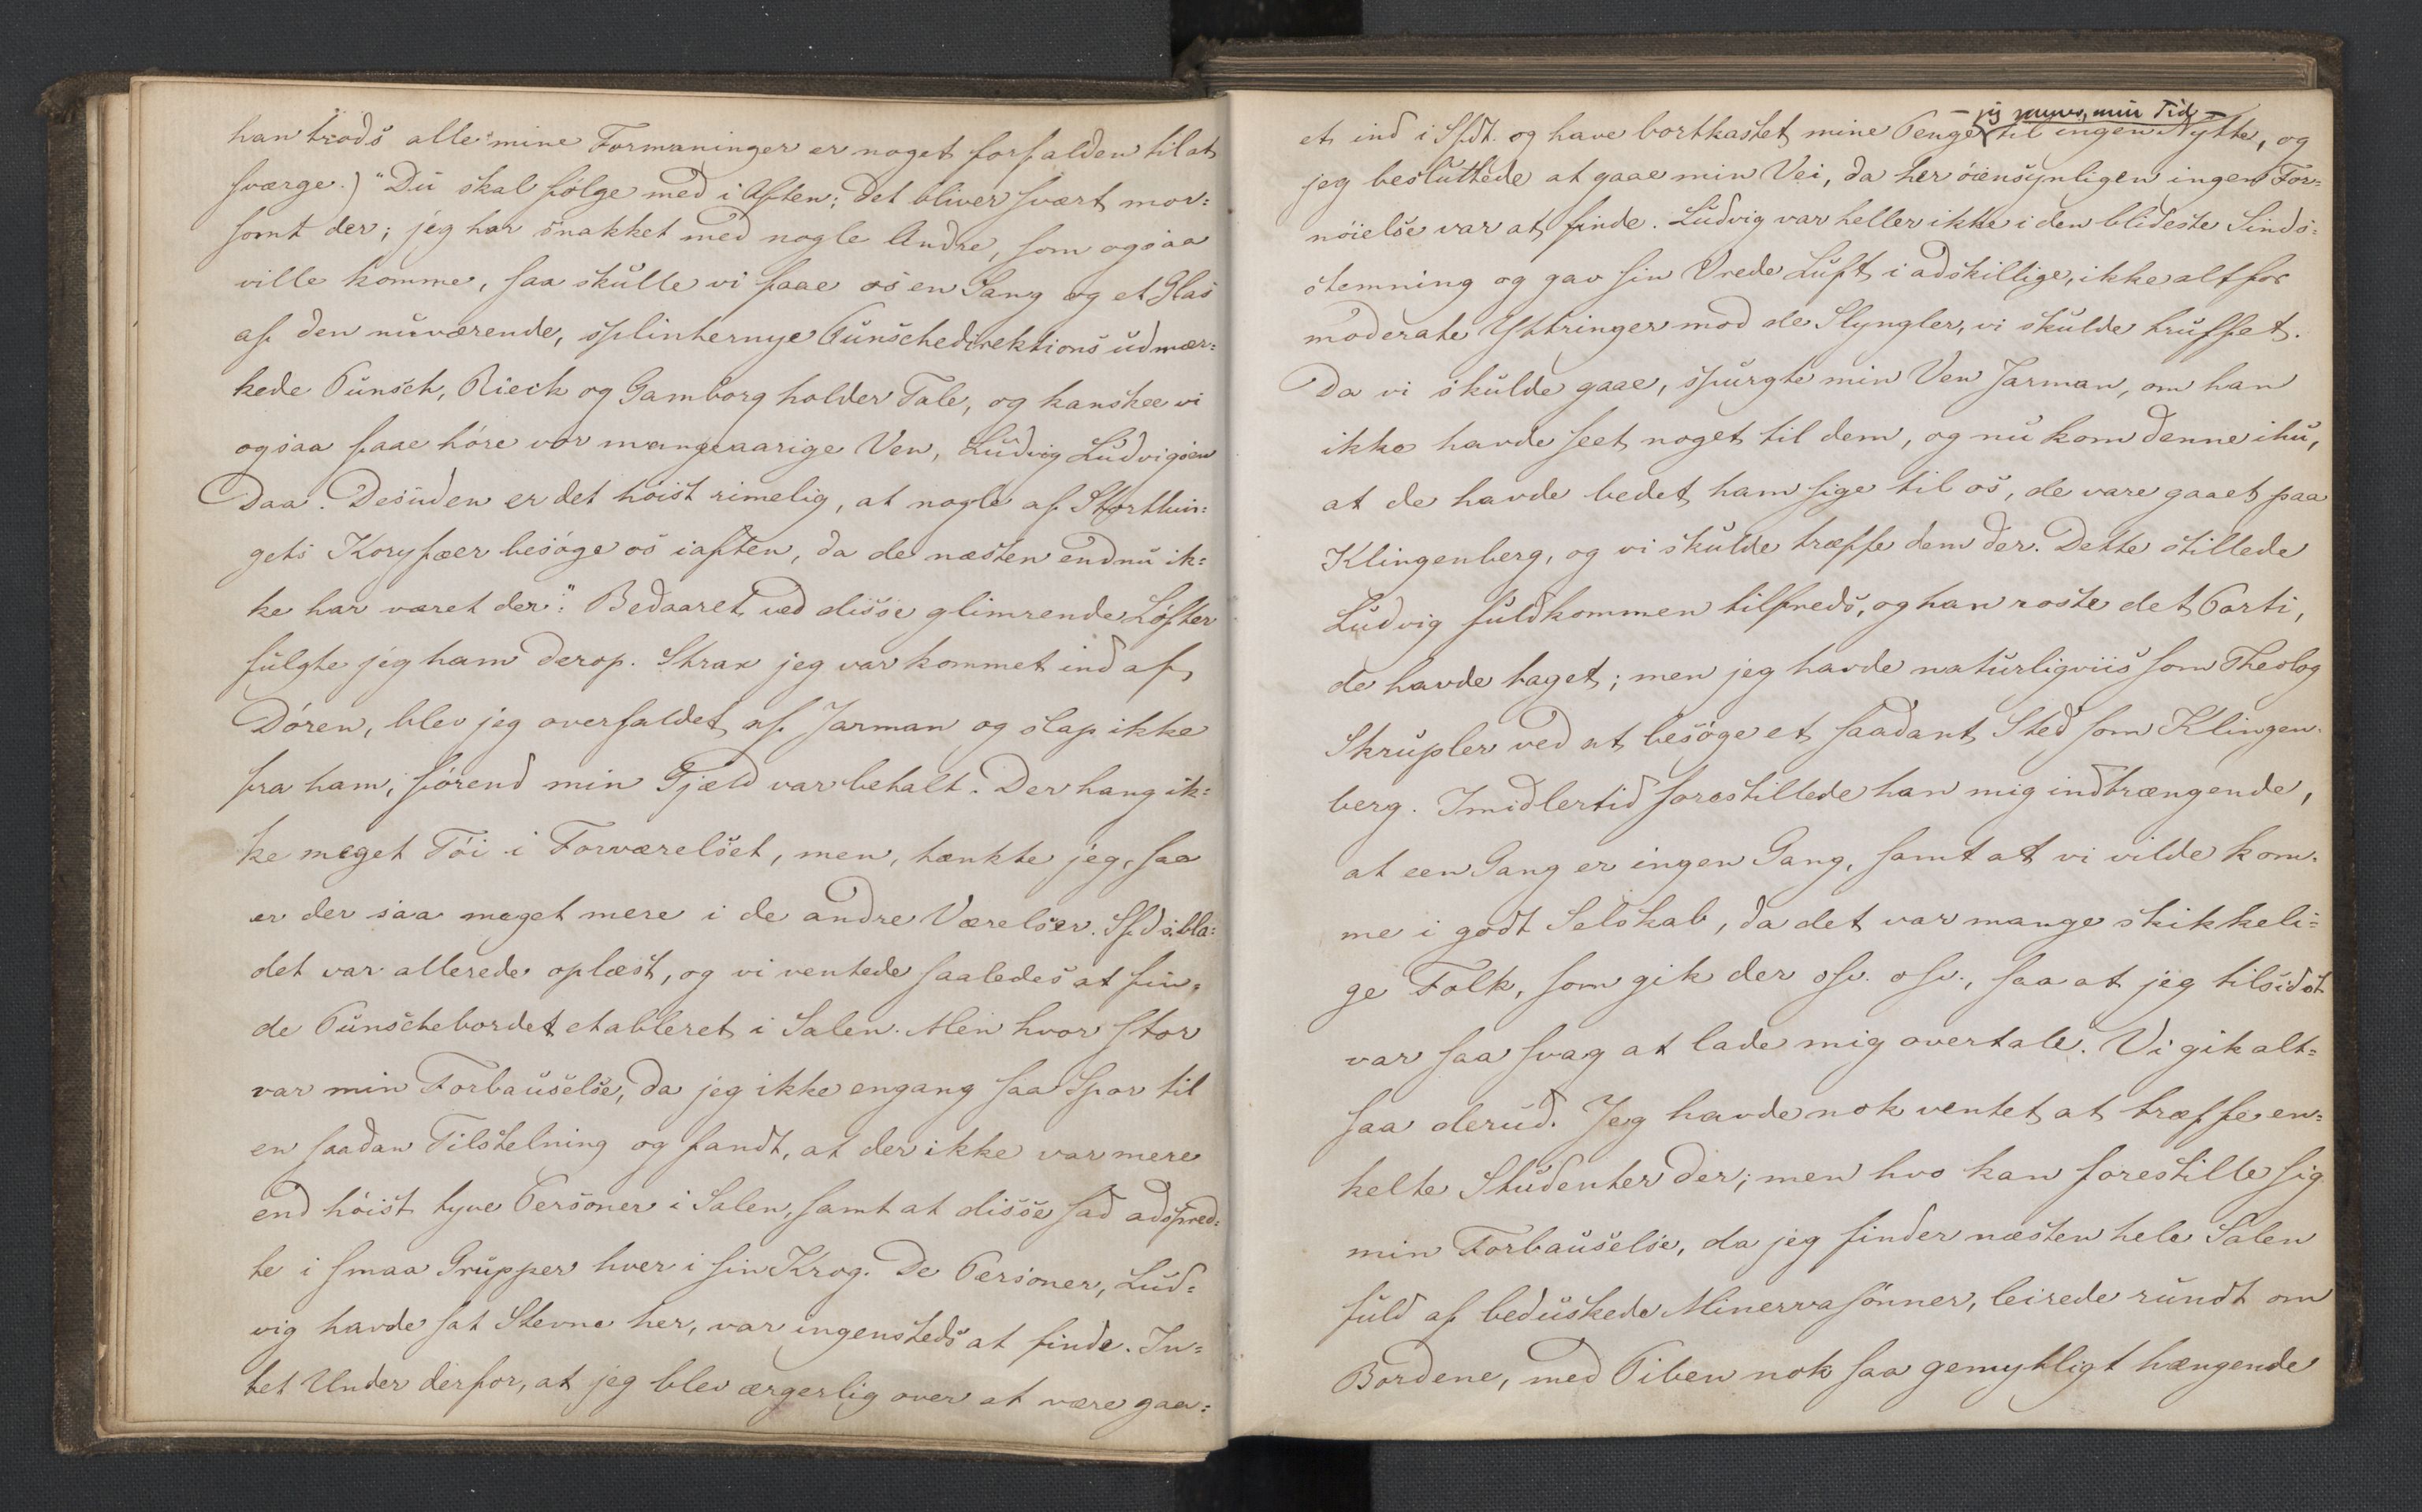 han trods alle mine Formaninger er noget forfalden til at
sværge.) "Du skal følge med i Aften; det bliver svært mor=
somt der; jeg har snakket med nogle Andre, som ogsaa
ville komme, saa skulle vi faae os en Sang og et Glas
af den nuværende, splinternye Punschedirektions udmær=
kede Punsch, Rieck og Gamborg holder Tale, og kanskee vi
ogsaa faae høre vor mangeaarige Ven, Ludvig Ludvigsen
Daa. Desuden er det høist rimelig, at nogle af Storthin=
gets Koryfæer besøge os iaften, da de næsten endnu ik=
ke har været der." Bedaaret ved disse glimrende Løfter
fulgte jeg ham derop. Strax jeg var kommet ind af
Døren, blev jeg overfaldet af Jarman og slap ikke
fra ham, førend min Gjæld var betalt. Der hang ik=
ke meget Tøi i Forværelset, men, tænkte jeg, saa
er der saa meget mere i de andre Værelser. Sfdsbla=
det var allerede oplæst, og vi ventede saaledes at fin=
de Punschebordet etableret i Salen. Men hvor stor
var min Forbauselse, da jeg ikke engang saa Spor til
en saadan Tilstelning og fandt, at der ikke var mere
end høist tyve Personer i Salen, samt at disse sad adspred=
te i smaa Grupper hver i sin Krog. De Personer, Lud=
vig havde sat Stevne her, var ingensteds at finde. In=
tet Under derfor, at jeg blev ærgerlig over at være gaa=
- jeg mener, min Tid -
et ind i Sfdt. og have bortkastet mine Penge til ingen Nytte, og
jeg besluttede at gaae min Vei, da her øiensynligen ingen For=
nøielse var at finde. Ludvig var heller ikke i den blideste Sinds=
stemning og gav sin Vrede Luft i adskillige, ikke altfor
moderate Yttringer mod de Slyngler, vi skulde truffet.
Da vi skulde gaae, spurgte min Ven Jarman, om han
ikke havde seet noget til dem, og nu kom denne ihu,
at de havde bedet ham sige til os, de vare gaaet paa
Klingenberg, og vi skulde træffe dem der. Dette stillede
Ludvig fuldkommen tilfreds, og han roste det Parti,
de havde taget; men jeg havde naturligviis som Theolog
Skrupler ved at besøge et saadant Sted som Klingen=
berg. Imidlertid forestillede han mig indtrængende,
at een Gang er ingen Gang, samt at vi vilde kom=
me i godt Selskab, da det var mange skikkeli=
ge Folk, som gik der osv. osv., saa at jeg tilsidst
var saa svag at lade mig overtale. Vi gik alt=
saa derud. Jeg havde nok ventet at træffe en=
kelte Studenter der; men hvo kan forestille sig
min Forbauselse, da jeg finder næsten hele Salen
fuld af beduskede Minervasønner, leirede rundt om
Bordene, med Piben nok saa gemytligt hængende